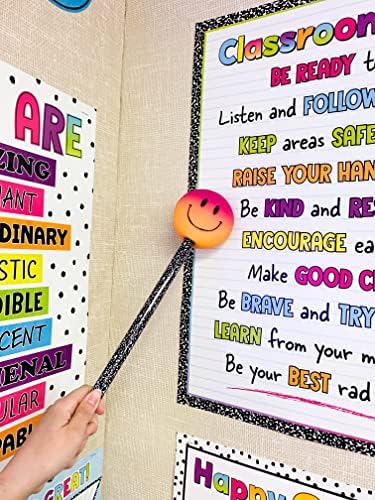 ARE
Classroom
BE READY
Listen and FOLLOW
KEEP areas SAFE
RAISE YOUR HAN
Be KIND and RES
ENCOURAGE ea
Make GOOD C
Be BRAVE and TRY
LEARN from your m
Be your BEST rad
ZING
IANT
RDINARY
STIC
DIBLE
CENT
ENAL
ULAR
PABL
GREAT!
Happy